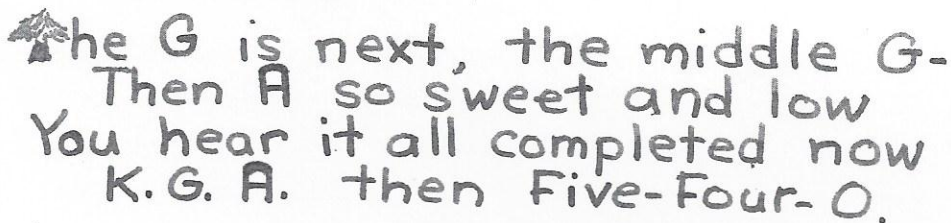 The G is next, the middle G-
Then A so sweet and low
You hear it all completed now
K. G. A. then Five-Four-O.